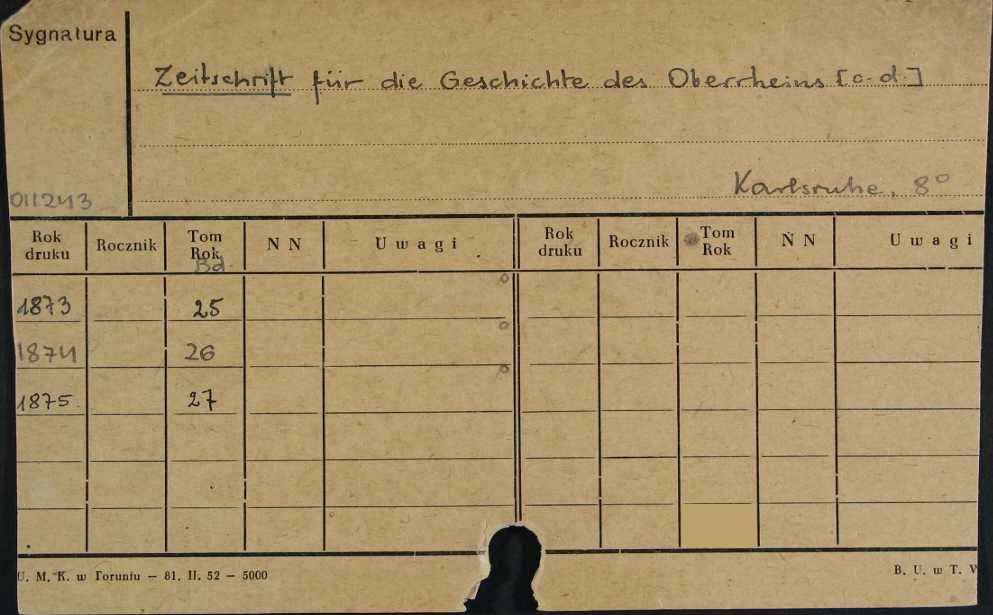 Sygnatura
Zeitschrift für die Geschichte des Oberrheins [c. d.]
Karlsruhe, 8°
011243
Rok druku Rocznik Tom Rok Bd. N N Uwagi Rok druku Rocznik Tom Rok N N Uwagi
1873 25
1874 26
1875. 27
U. M. K. w Toruniu – 81. II. 52 – 5000
B. U. w T.